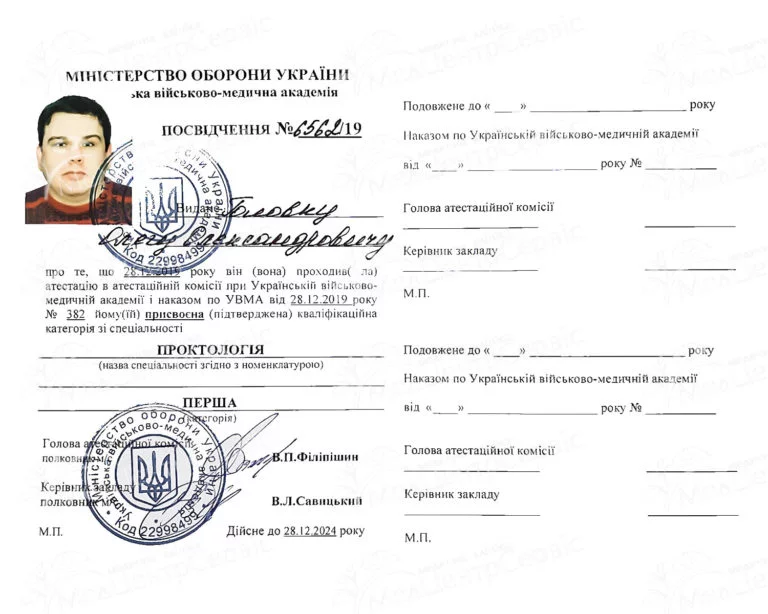 МІНІСТЕРСТВО ОБОРОНИ УКРАЇНИ
ька військово-медична академія
ПОСВІДЧЕННЯ №6562/19
Видане
Олександровичу
про те, що 28.12.2019 року він (вона) проходив( ла)
атестацію в атестаційній комісії при Українській військово-
медичній академії і наказом по УВМА від 28.12.2019 року
№ 382 йому(їй) присвоєна (підтверджена) кваліфікаційна
категорія зі спеціальності
ПРОКТОЛОГІЯ
(назва спеціальності згідно з номенклатурою)
ПЕРША
(категорія)
Голова атестаційної комісії
полковник м/с
В.П.Філіпішин
Керівник закладу
полковник м/с
В.Л.Савицький
М.П.
Дійсне до 28.12.2024 року
Міністерство оборони України
Українська військово-медична академія
Код 22998499
Подовжене до « ___ » ________ року
Наказом по Українській військово-медичній академії
від «____» ________ року № ________
Голова атестаційної комісії
Керівник закладу
М.П.
Подовжене до « ___ » ________ року
Наказом по Українській військово-медичній академії
від «____» ________ року № ________
Голова атестаційної комісії
Керівник закладу
М.П.
МедЦентрСервіс